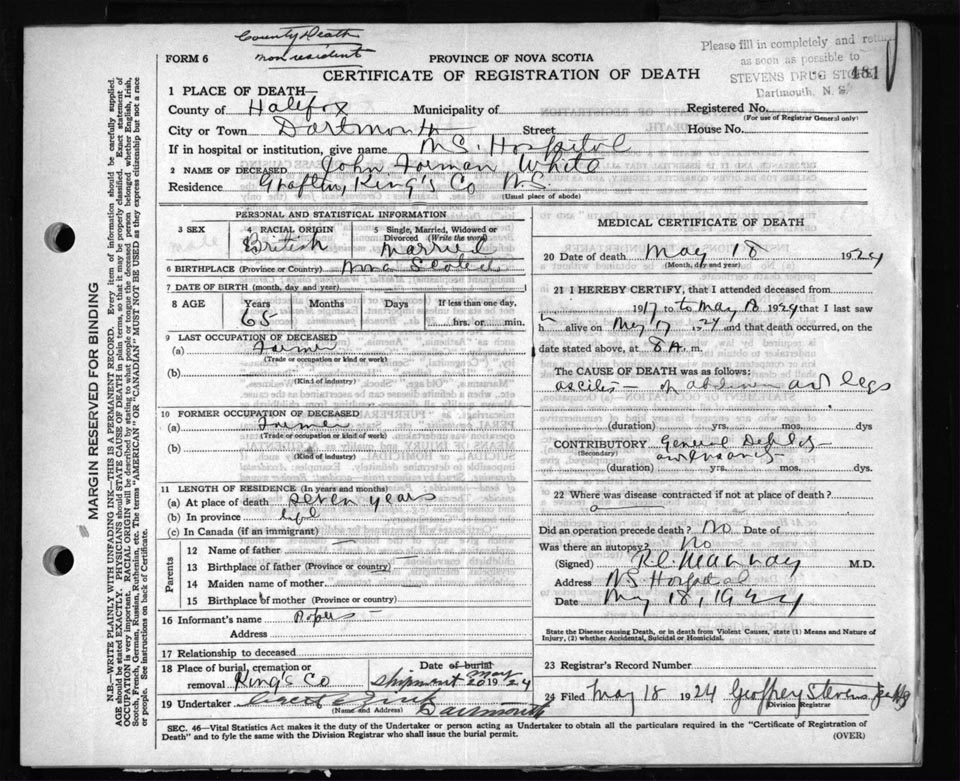 County Death
non resident
Please fill in completely and return
as soon as possible to
STEVENS DRUG STORE
Dartmouth, N. S.
481
FORM 6
PROVINCE OF NOVA SCOTIA
CERTIFICATE OF REGISTRATION OF DEATH
1 PLACE OF DEATH—
County of Halifax Municipality of Registered No.
(For use of Registrar General only)
City or Town Dartmouth Street House No.
If in hospital or institution, give name N.S. Hospital
2 NAME OF DECEASED John Forman White
Residence Grafton, King's Co N.S.
(Usual place of abode)
PERSONAL AND STATISTICAL INFORMATION
3 SEX 4 RACIAL ORIGIN 5 Single, Married, Widowed or Divorced (Write the word)
male British Married
6 BIRTHPLACE (Province or Country) Nova Scotia
7 DATE OF BIRTH (month, day and year)
8 AGE Years Months Days If less than one day,
65 hrs. or min.
9 LAST OCCUPATION OF DECEASED
(a) Farmer
(Trade or occupation or kind or work)
(b)
(Kind of industry)
10 FORMER OCCUPATION OF DECEASED
(a) Farmer
(Trade or occupation or kind of work)
(b)
(Kind of industry)
11 LENGTH OF RESIDENCE (In years and months)
(a) At place of death seven years
(b) In province life
(c) In Canada (if an immigrant)
Parents
12 Name of father —
13 Birthplace of father (Province or country) —
14 Maiden name of mother —
15 Birthplace of mother (Province or country)
16 Informant's name Papers —
Address
17 Relationship to deceased
18 Place of burial, cremation or removal King's Co Date of burial shipment May 20 1924
19 Undertaker Dartmouth
(Name and Address)
MEDICAL CERTIFICATE OF DEATH
20 Date of death May 18 1924
(Month, day and year)
21 I HEREBY CERTIFY, that I attended deceased from
1917 to May 18 1924 that I last saw
h alive on May 17 1924 and that death occurred, on
date stated above, at 8 A. m.
The CAUSE OF DEATH was as follows:
ascites — of abdomen and legs
(duration) yrs. mos. dys
CONTRIBUTORY General Debility
(Secondary) and Insanity
(duration) yrs. mos. dys.
22 Where was disease contracted if not at place of death?
Did an operation precede death? No Date of
Was there an autopsy? No
(Signed) M.D.
Address NS Hospital
Date May 18, 1924
State the Disease causing Death, or in death from Violent Causes, state (1) Means and Nature of
Injury, (2) whether Accidental, Suicidal or Homicidal.
23 Registrar's Record Number
24 Filed May 18 1924 Geoffrey Stevens
Division Registrar
SEC. 46—Vital Statistics Act makes it the duty of the Undertaker or person acting as Undertaker to obtain all the particulars required in the "Certificate of Registration of
Death" and to fyle the same with the Division Registrar who shall issue the burial permit.
(OVER)
MARGIN RESERVED FOR BINDING
N.B.—WRITE PLAINLY WITH UNFADING INK—THIS IS A PERMANENT RECORD. Every item of information should be carefully supplied.
AGE should be stated EXACTLY. PHYSICIANS should STATE CAUSE OF DEATH in plain terms, so that it may be properly classified. Exact statement of
OCCUPATION is very important. RACIAL ORIGIN will be described by stating to what people or tongue the deceased person belonged whether English, Irish,
Scotch, French, German, Russian, Ruthenian, etc. The terms "AMERICAN" OR "CANADIAN" MUST NOT BE USED as they express citizenship but not a race
or people. See instructions on back of Certificate.